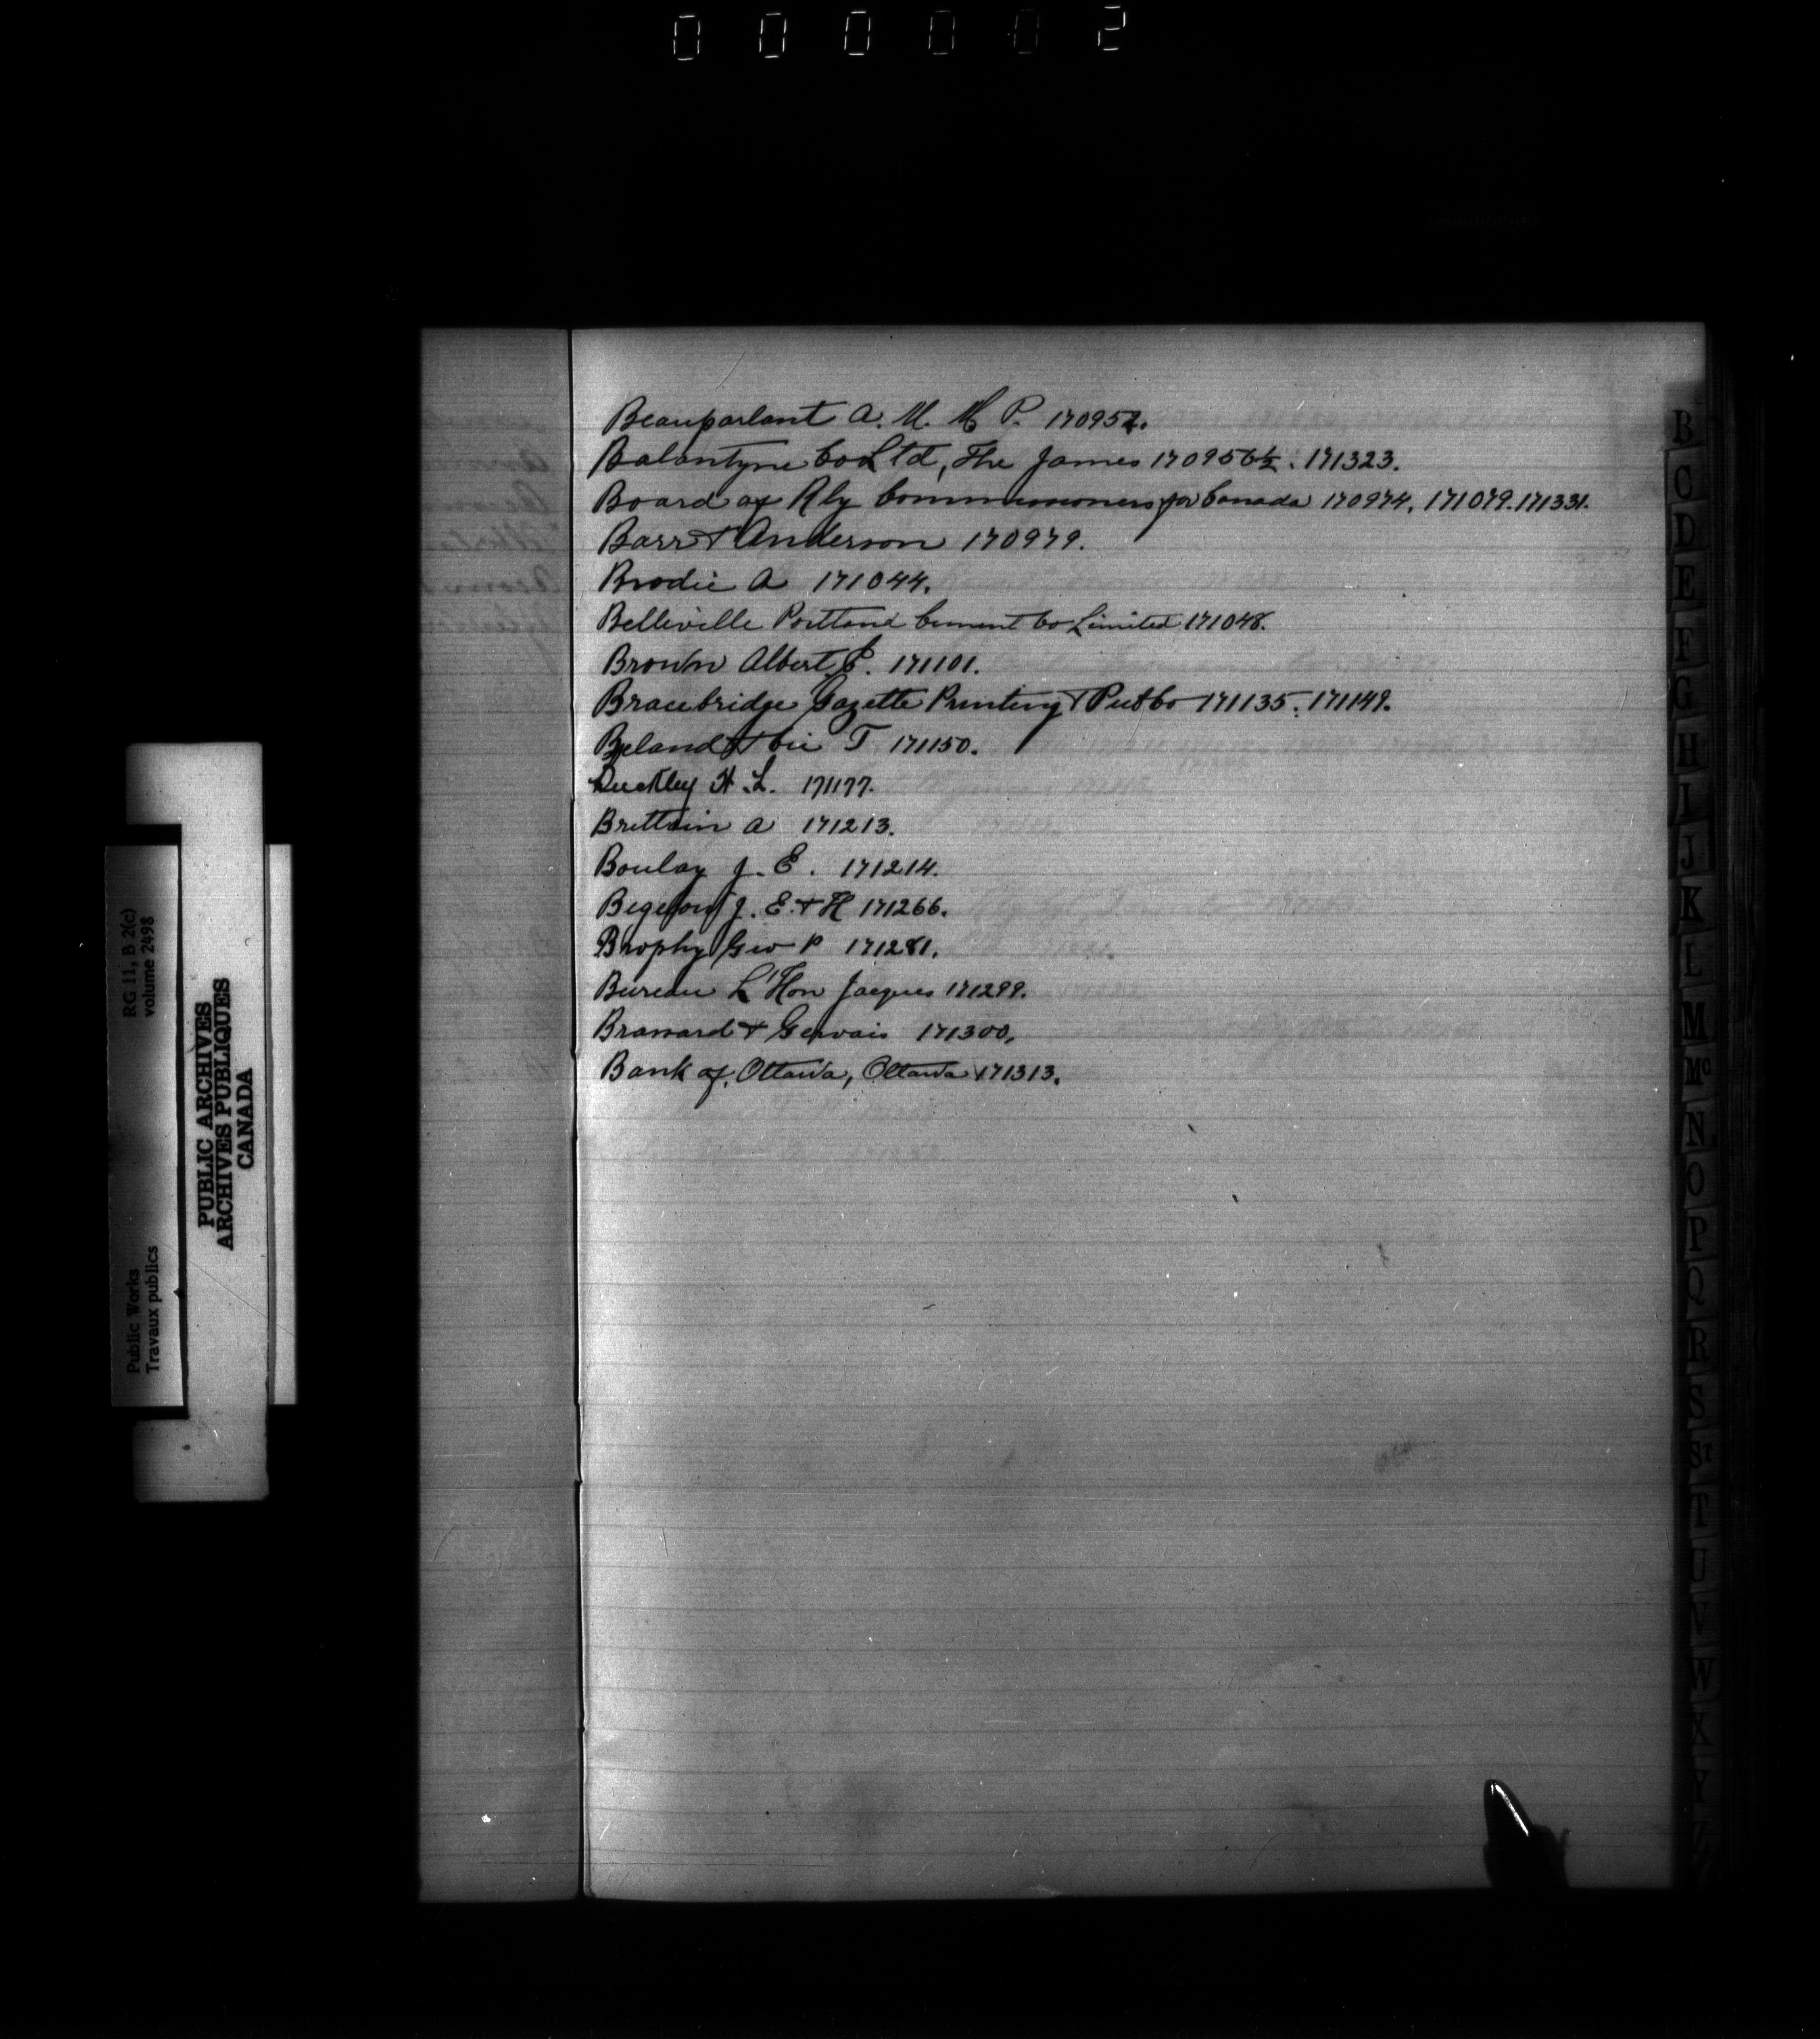 000002
Beauparlant A. M. M P. 170952.
Balantyne Co Ltd, The James 170956½. 171323.
Board of Rly Commissioners for Canada 170974. 171079. 171331.
Barr & Anderson 170979.
Brodie A 171044.
Belleville Portland Cement Co Limited 171048.
Brown Albert E. 171101.
Bracebridge Gazette Printing & Pub Co 171135. 171149.
Beland & Cie T 171150.
Buckley H. L. 171177.
Brittain A 171213.
Boulay J. E. 171214.
Bigelow J. E. & H 171266.
Brophy Geo P 171281.
Bureau L'Hon Jacques 171299.
Brassard & Gervais 171300.
Bank of Ottawa, Ottawa 171313.
B
C
D
E
F
G
H
I
J
K
L
M
Mc
N
O
P
Q
R
S
ST
T
U
V
W
X
Y
Z
RG 11, B 2(c)
volume 2498
Public Works
Travaux publics
PUBLIC ARCHIVES
ARCHIVES PUBLIQUES
CANADA